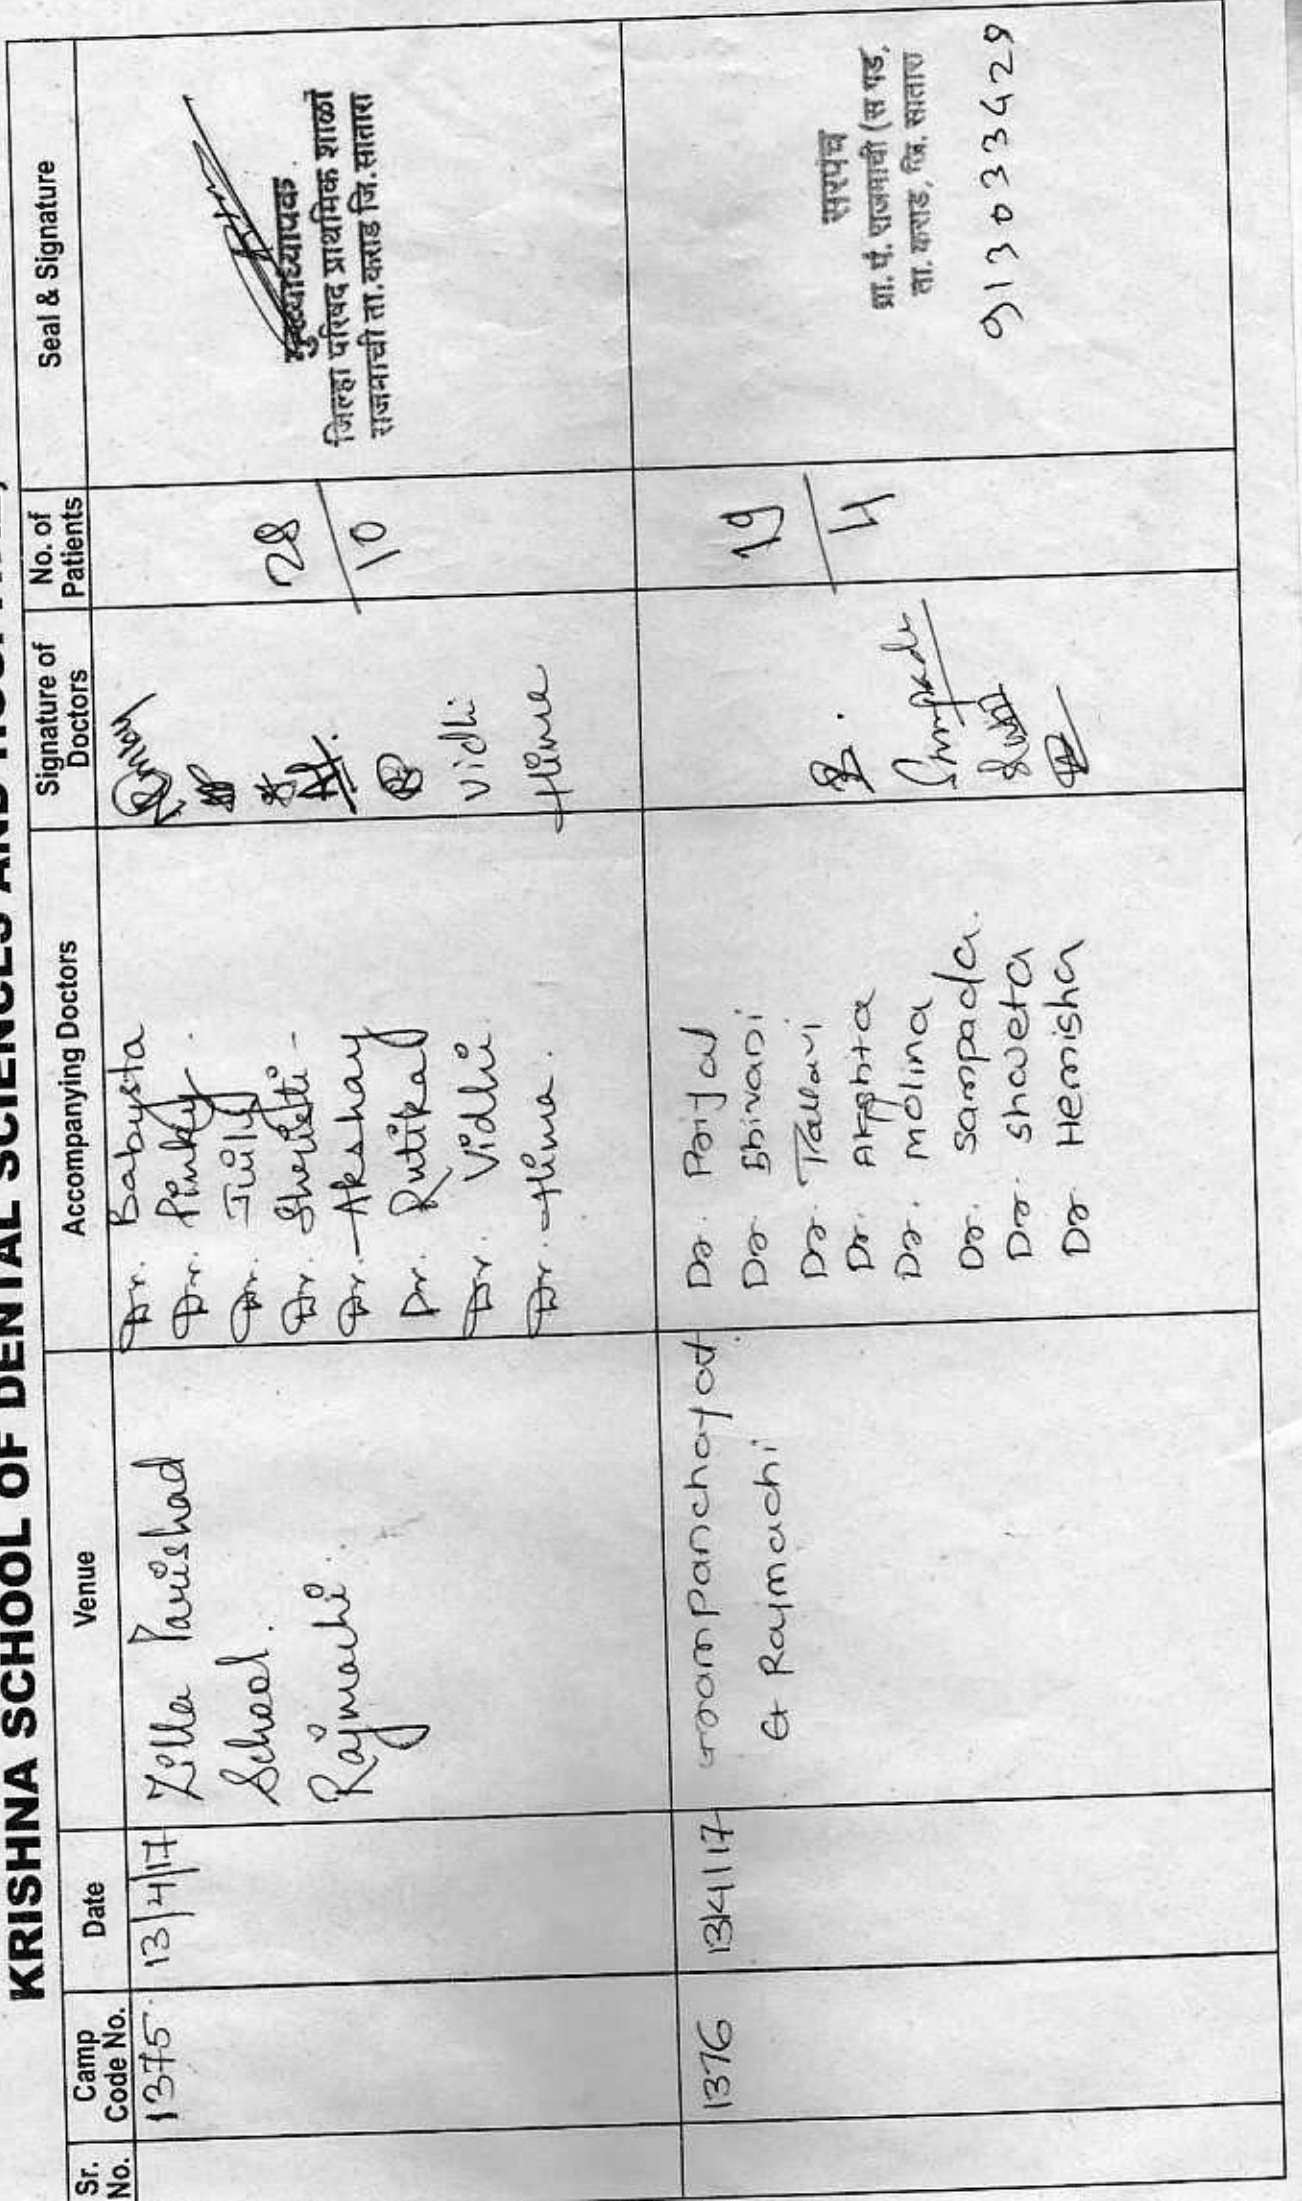 KRISHNA SCHOOL OF DENTAL SCIENCES AND
Sr. No.
Camp Code No.
Date
Venue
Accompanying Doctors
Signature of Doctors
No. of Patients
Seal & Signature
1375.
13/4/17
Zilla Parishad
School.
Rajmachi
Dr. Babysta
Dr. Pinky.
Dr. Juily
Dr. Shruti
Dr. Akshay
Dr. Rutika
Dr. Vidhi
Dr. Hima.
Vidhi
Hima
28
10
मुख्याध्यापक
जिल्हा परिषद प्राथमिक शाळा
राजमाची ता.कराड जि.सातारा
1376
13/4/17
Grampanchayat
Rajmachi
Dr. Payal
Dr. Shivani
Dr. Pallavi
Dr. Akshta
Dr. Molina
Dr. Sampada.
Dr. Shweta
Dr. Hemisha
Sampada
19
4
सरपंच
ग्रा. पं. राजमाची
ता. कराड, जि. सातारा
913033429